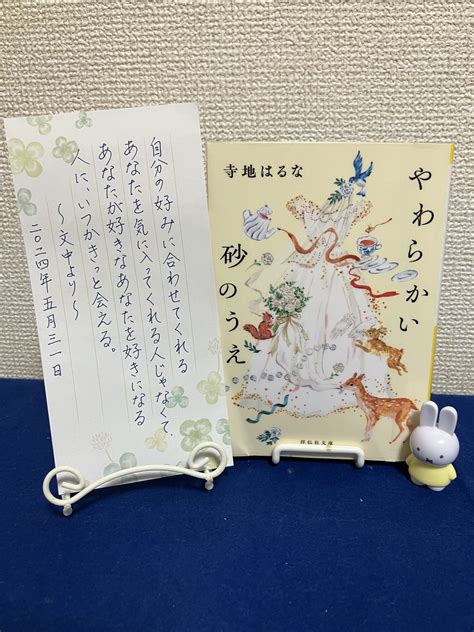 自分の好みに合わせてくれる
あなたを気に入ってくれる人じゃなくて、
あなたが好きなあなたを好きになる
人に、いつかきっと会える。
〜文中より〜
二〇二四年五月三一日
寺地はるな
やわらかい
砂のうえ
祥伝社文庫